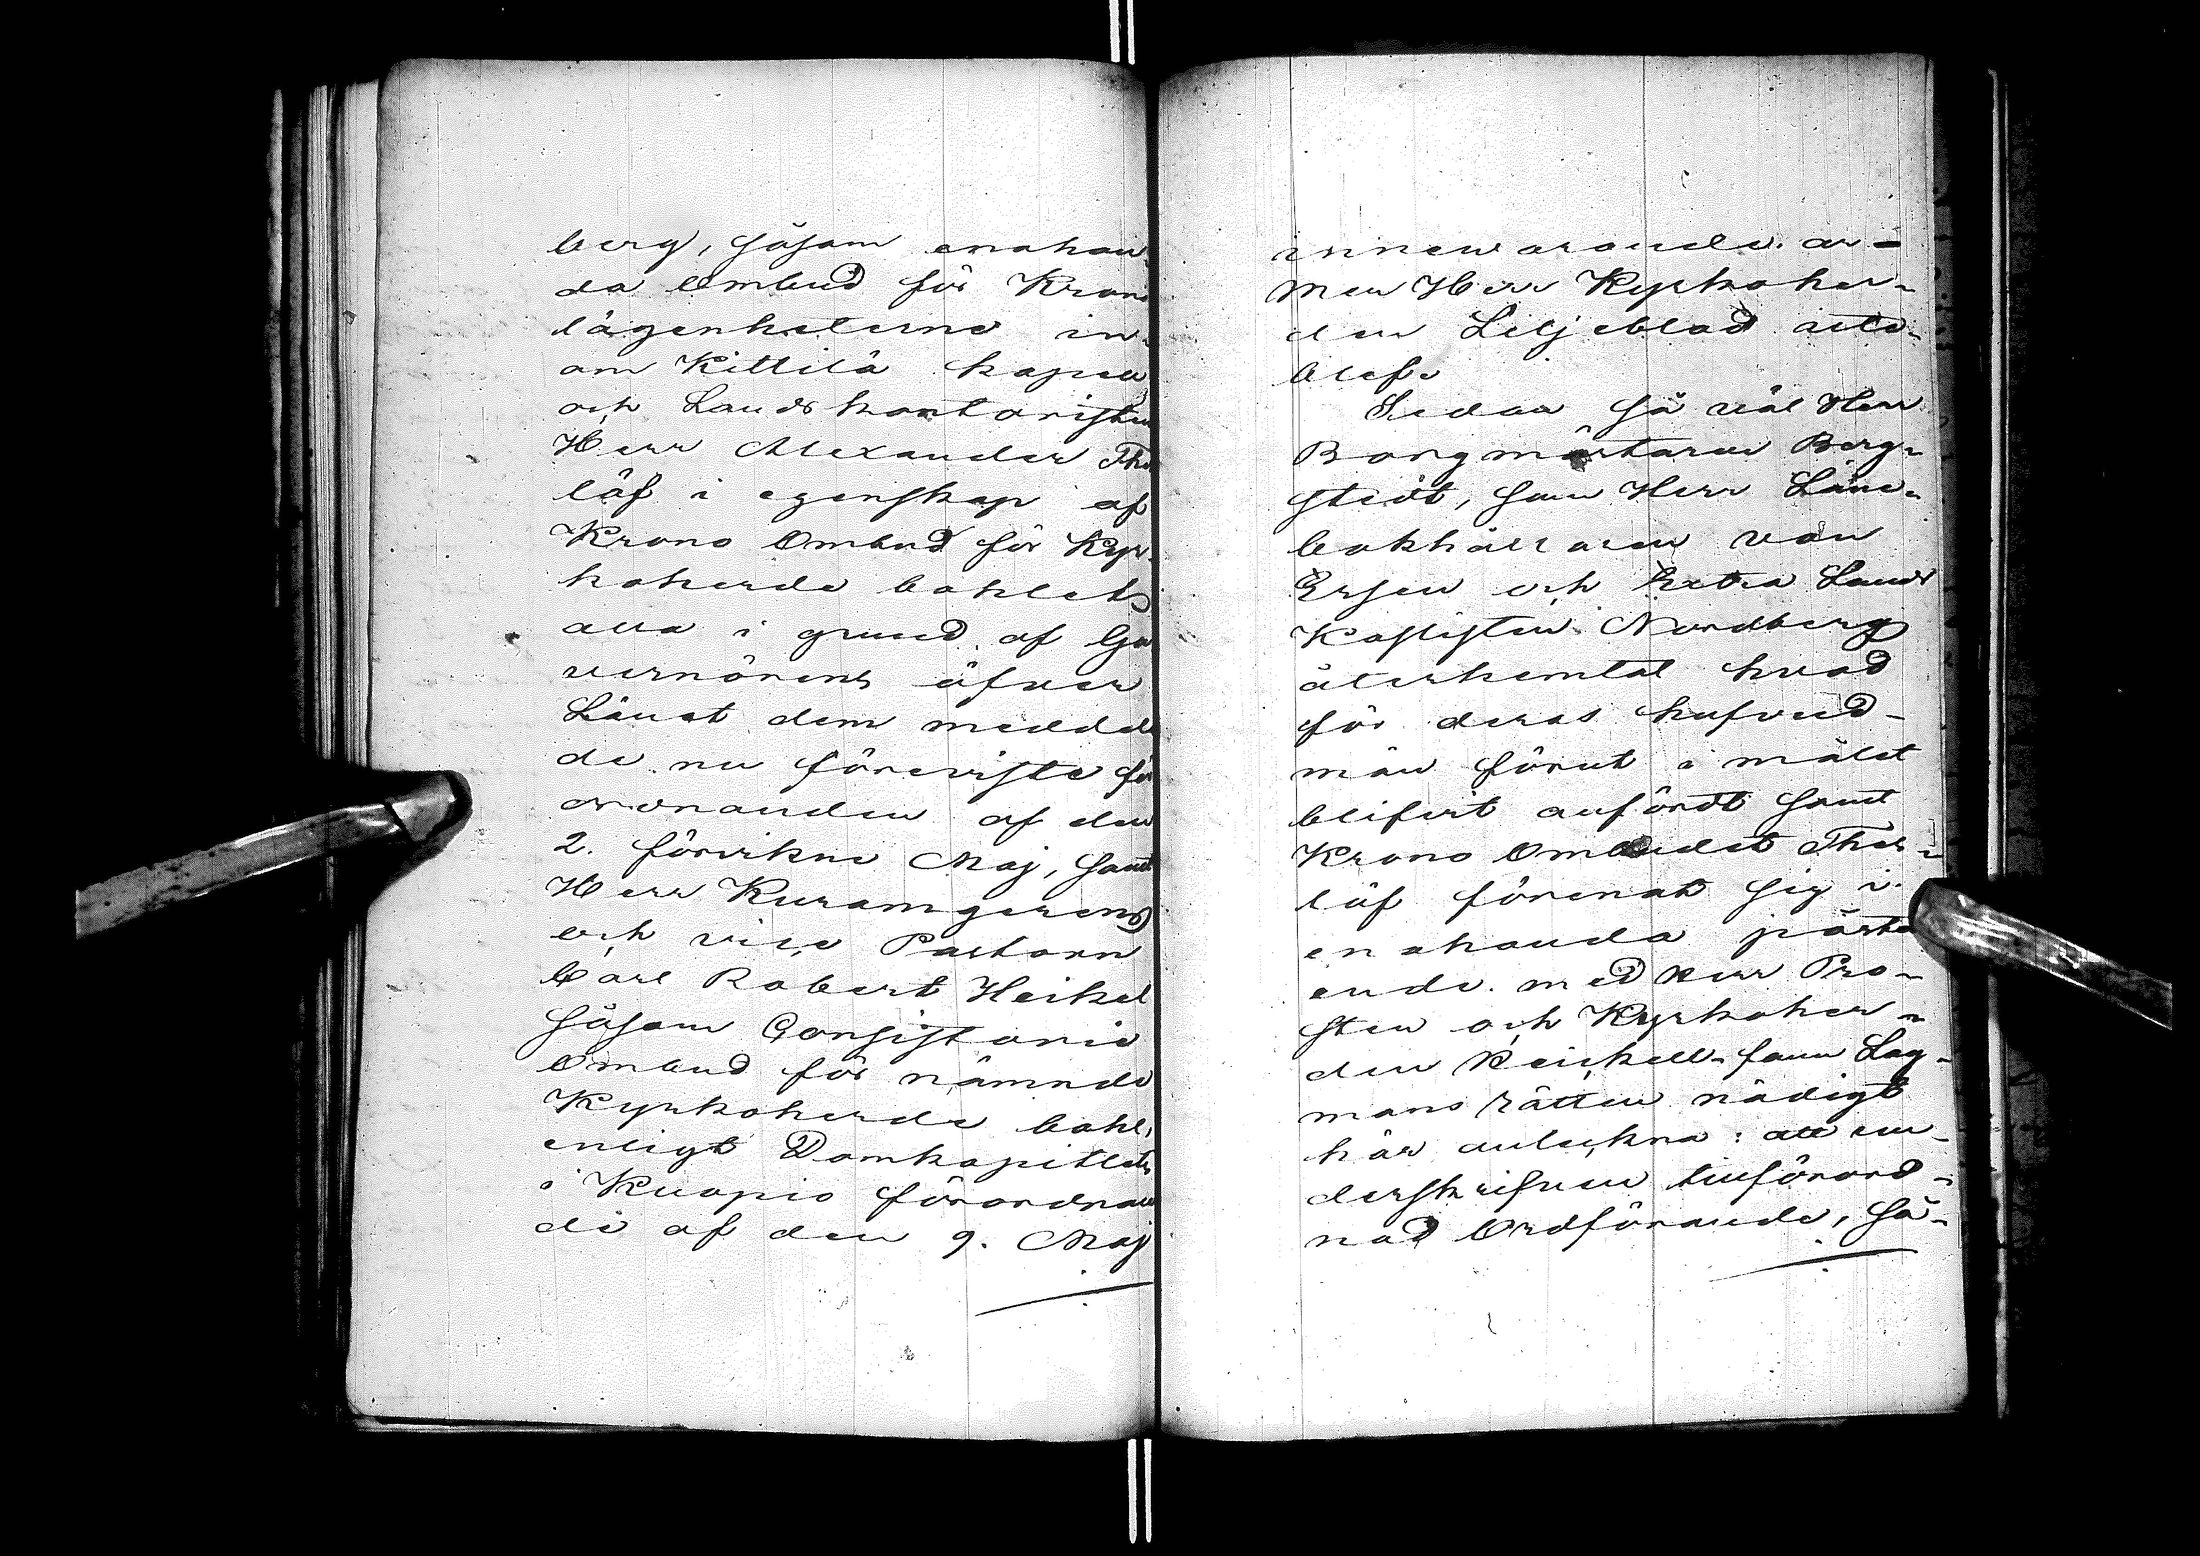 berg, såsom enahan-
da Ombud för Krono
lägenheterne in-
om Kittilä kapell
och Landskontoristen
Herr Alexander Thor
löf i egenskap af
Krono Ombud för Kyr-
koherde bohlets
alla i grund af Gu
vernörens öfver
Länet dem meddel
de nu föreviste för
ordnanden af den
2.förvekne Maj, samt
Herr Kuramgerens
och vice Pastorn
Carl Robert Heikel
såsom Consistorie
Ombud för nämnde
Kyrkoherde bohl,
enligt Domkapitlets
i Kuopio förordnan
de af den 9. Maj
innevarande år –
men Herr Kyrkoher-
den Liljeblad ute-
blef.
Sedan så väl Herr
Borgmästaren Berg-
stedt, som Herr Läns-
bokhållaren von
Essen och Extra Lands
Kassisten Nordberg
återhemtat hvad
för deras hufvud-
män förut i målet
blifvit anfördt samt
Krono Ombudet Thor-
löf förenat sig i
enahanda påstå
ende med Herr Pro-
sten och Kyrkoher-
den Heickell fann Lag-
mans rätten nödigt
här anteckna: att un-
derskrifven tillförord-
nad Ordförande, så-